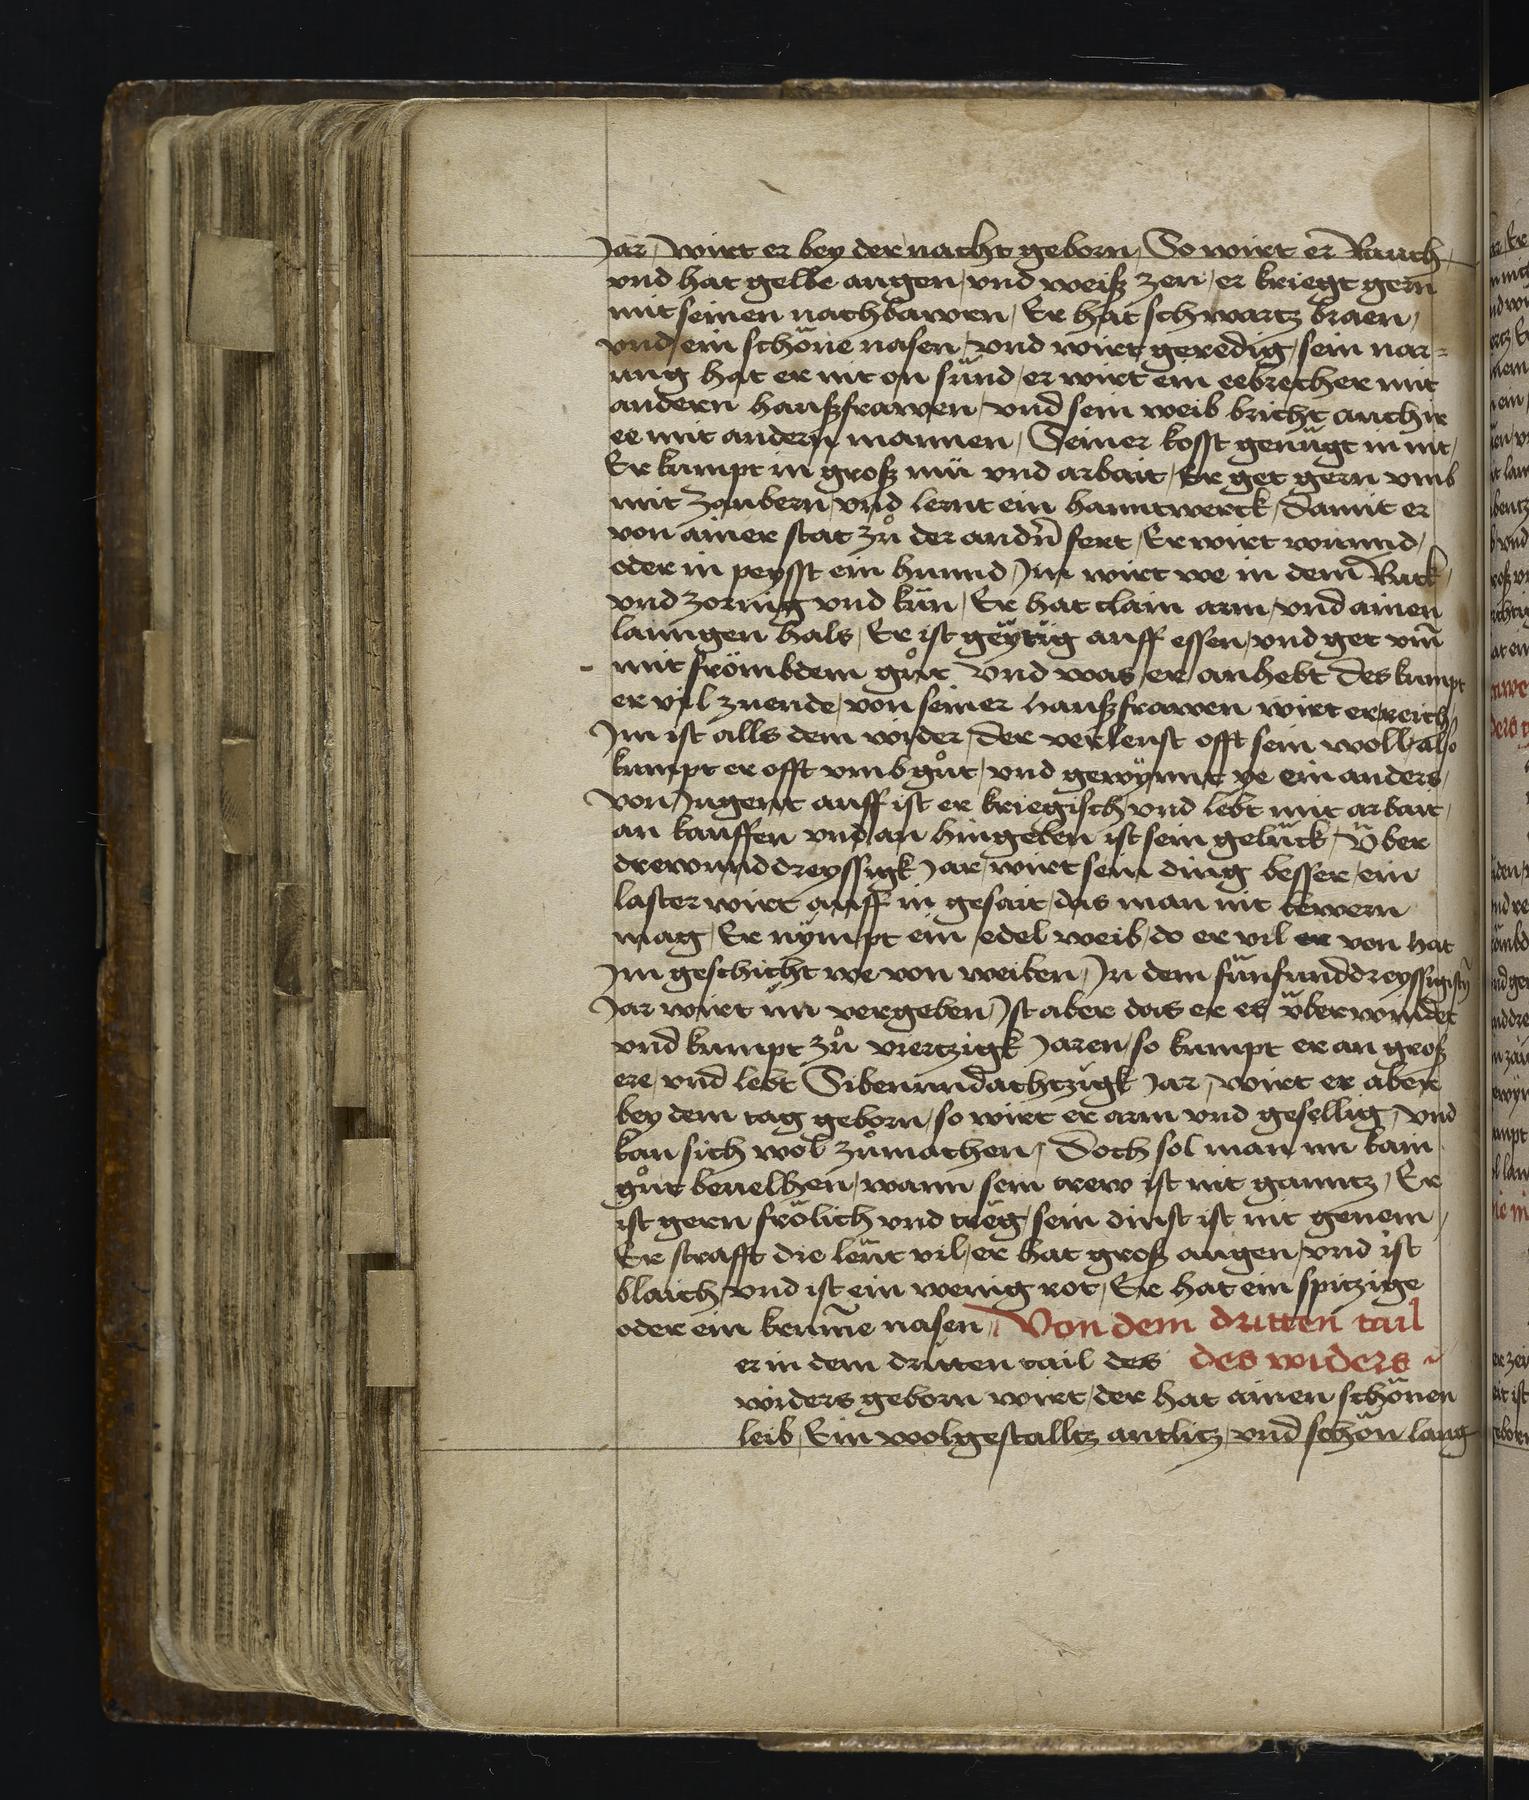 Jar, wirt er bey der nacht geborn, So wirt er Rauch,
vnd hat gelbe augen, vnd weiß zen, er kriegt gern
mit seinen nachbawren, Er hat schwartz braen,
vnd ein schöne nasen, vnd wirt geredig, sein nar=
ung hat er nit on sünd, er wirt ein eebrecher mit
andern haußfrawen, vnd sein weib bricht auch ir
ee mit andern mannen, Seiner kosst genügt in nit,
Er kumpt in groß mü vnd arbait, Er get gern vmb
mit zaubern, vnd lernt ein hanntwerck, damit er
von ainer stat zů der andñ fert, Er wirt wunnd,
oder in peysst ein hunnd, Jm wirt we in dem Ruck,
vnd zornig vnd kün, Er hat clain arm, vnd ainen
lanngen hals, Er ist geytig auff essen, vnd get vm̃
mit frömbdem gůt vnd was er anhebt des kumpt
er vil zuende, von seiner haußfrawen wirt er reich,
Jm ist alls dem wider, der verleust offt sein woll, also
kumpt er offt vmb gůt, vnd gewynnt ye ein anders,
von Jugent auff ist er kriegisch vnd lebt mit arbait,
an kauffen vnd an hingeben ist sein gelück, Über
drewunddreyssigk Jar, wirt sein ding besser, ein
laster wirt auff in gesait, das man nit bewern
mag, Er nympt ein edel weib, do er vil er von hat
Jm geschicht we von weiben, Jn dem fünfunddreyssigistñ
Jar wirt im vergeben, Jst aber das er es überwindet
vnd kumpt zů viertzigk Jaren, so kumpt er an groß
ere, vnd lebt Sibenundachtzigk Jar, wirt er aber
bey dem tag geborn, so wirt er arm vnd gesellig, vnd
kan sich wol zůmachen, doch sol man im kain
gůt beuelhen, wann sein trew ist nit ganntz, Er
ist gern frölich vnd treg, sein dinst ist nit genem,
Er strafft die leüt vil, er hat groß augen, vnd ist
blaich, vnd ist ein wenig rot, Er hat ein spitzige
oder ein krum̃e nasen, Von dem dritten tail
er in dem dritten tail des des widers
widers geborn wirt, der hat ainen schönen
leib, Ein wolgestalltz antlitz, vnd schön lang